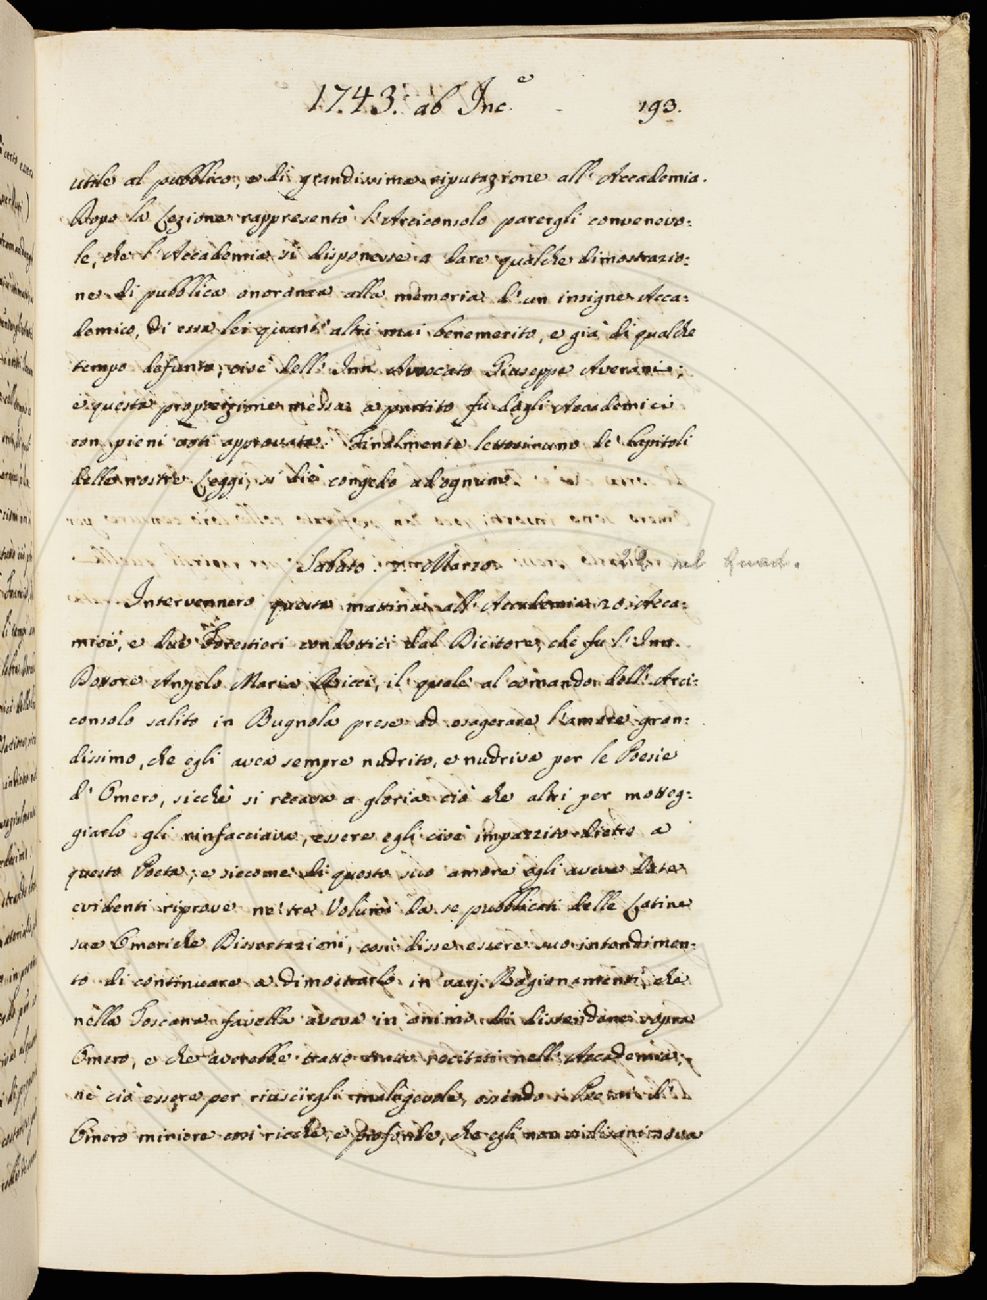 1743. ab Inc.e
193.
utile al pubblico, e di grandissima riputazione all' Accademia.
Dopo la Lezione rappresentò l'Arciconsolo parergli convenevo:
le, che l'Accademia si disponesse a dare qualche dimostrazio:
ne di pubblica onoranza alla memoria d'un insigne Acca:
demico, di essa lei quant'altri mai benemerito, e già di qualche
tempo defunto, cioè dell' Inn. Avvocato Giuseppe Averani;
e questa proposizione messa a partito fu dagli Accademici
con pieni voti approvata. Finalmente lettosi uno de' Capitoli
delle nostre Leggi, si diè congedo ad ognuno.
Sabato Marzo 22 nel Quad.
Intervennero questa mattina all' Accademia 20 Acca:
mici, e due Forestieri condottici dal Dicitore, che fu l' Inn.
Dottore Angelo Maria Ricci, il quale al comando dell' Arci:
consolo salito in Bugnola prese ad esagerare l'amore gran:
dissimo, che egli avea sempre nudrito, e nudriva per le Poesie
d' Omero, sicchè si recava a gloria ciò che altri per motteg:
giarlo gli rinfacciava, essere egli cioè impazzito dietro a
questo Poeta; e siccome di questo suo amore egli aveva date
evidenti riprove ne' tre Volumi da se pubblicati delle Latine
sue Omeriche Dissertazioni, così disse essere suo intendimen:
to di continuare a dimostrarlo in varj Ragionamenti, che
nella Toscana favella aveva in animo di distendere sopra
Omero, e che averebbe tratto tratto recitati nell' Accademia;
nè ciò essere per riuscirgli malagevole, essendo i Poemi di
Omero miniere così ricche, e profonde, che egli non si disanimava